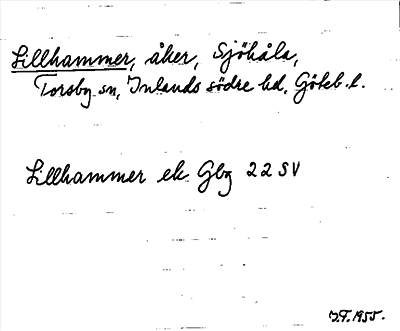 Lillhammer, åker, Sjöhåla,
Torsby sn, Inlands södre hd, Göteb. l.
Lillhammer ek Gbg 22 SV
I.F. 1955.